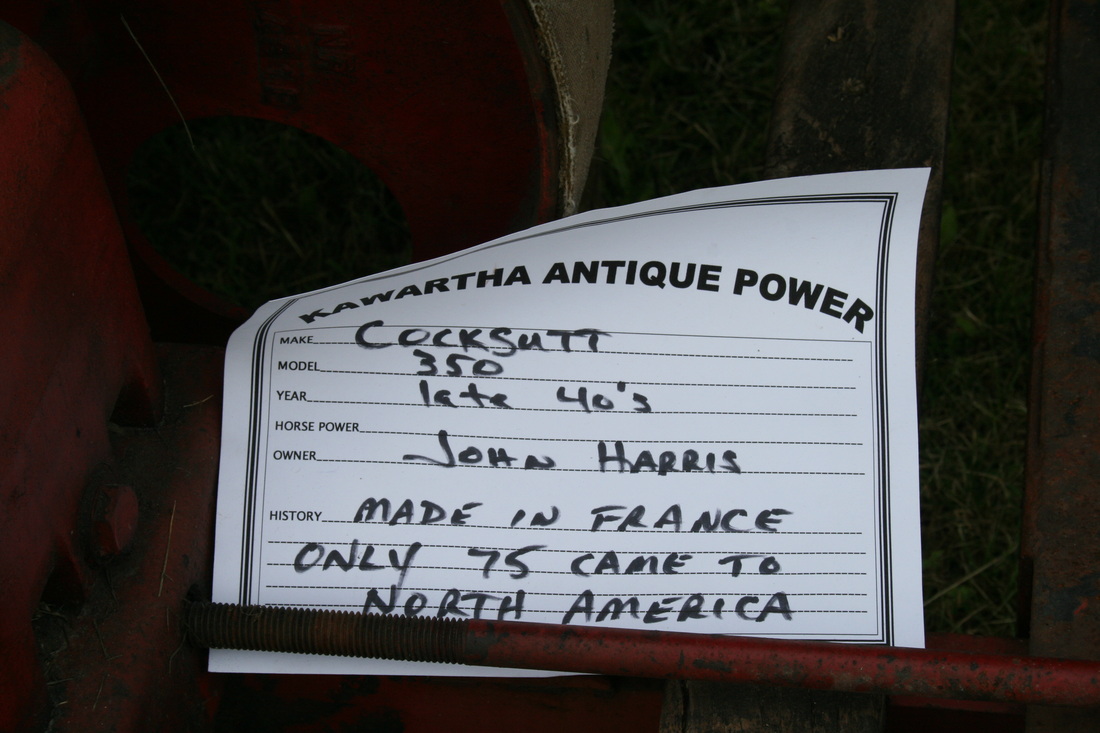 KAWARTHA ANTIQUE POWER
MAKE COCKSUTT
MODEL 350
YEAR late 40's
HORSE POWER
OWNER JOHN HARRIS
HISTORY MADE IN FRANCE
ONLY 75 CAME TO
NORTH AMERICA